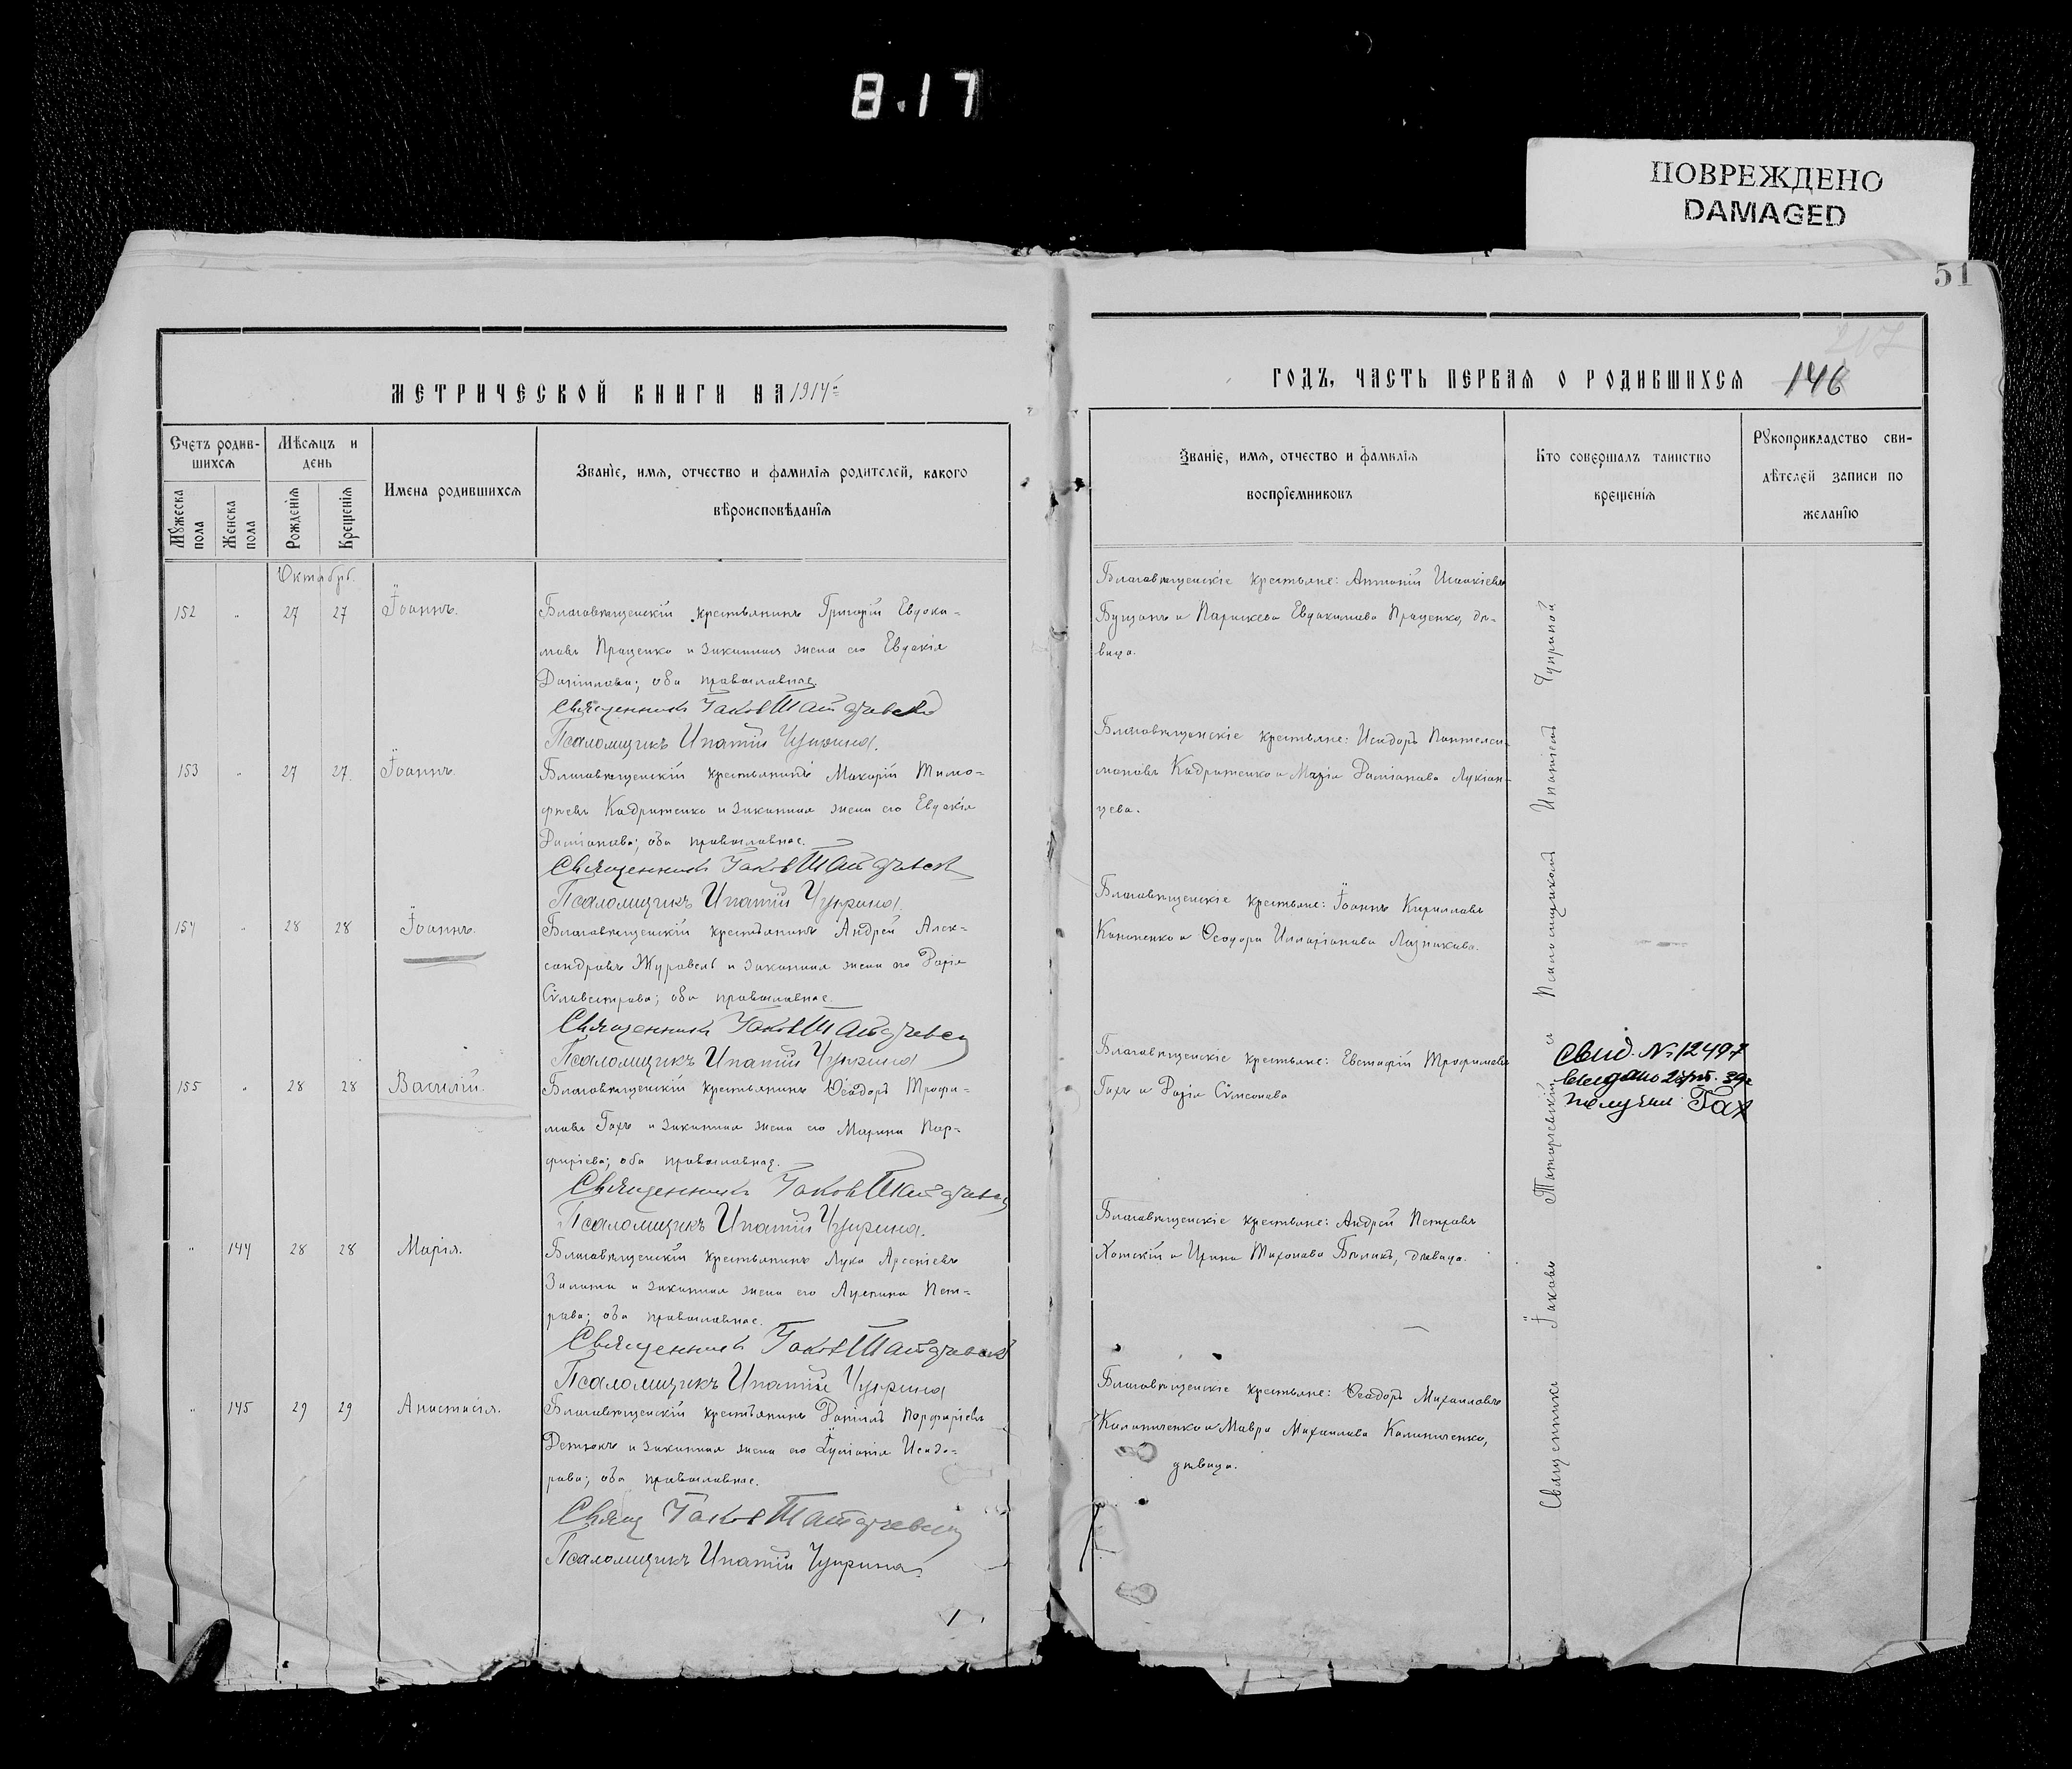 8.17
ПОВРЕЖДЕНО
DAMAGED
51
МЕТРИЧЕСКОЙ КНИГИ НА 1914
ГОДЪ, ЧАСТЬ ПЕРВАЯ О РОДИВШИХСЯ
146
Счетъ родив-
шихся
Мѣсяцъ и
день
Имена родившихся
Званіе, имя, отчество и фамилія родителей, какого
вѣроисповѣданія
Мужеска
пола
Женска
пола
Рожденія
Крещенія
Званіе, имя, отчество и фамилія
воспріемниковъ
Кто совершалъ таинство
крещенія
Рукоприкладство сви-
дѣтелей записи по
желанію
Октябрь.
152 " 27 27 Іоаннъ.
Благовѣщенскій крестьянинъ Григорій Евдоки-
мовъ Проценко и законная жена его Евдокія
Даніилова; оба православные.
Священникъ Іаковъ
Псаломщикъ Ипатій Чуприна.
Благовѣщенскіе крестьяне: Антоній
и Параскева Евдокимова Проценко, дѣ-
вица.
153 " 27 27. Іоаннъ.
Благовѣщенскій крестьянинъ Макарій Тимо-
фѣевъ Кадрименко и законная жена его Евдокія
Даміанова; оба православные.
Священникъ Іаковъ
Псаломщикъ Ипатій Чуприна.
Благовѣщенскіе крестьяне: Исидоръ Пантелеи-
моновъ и Марія Даміанова Лукіан-
цева.
154 " 28 28 Іоаннъ.
Благовѣщенскій крестьянинъ Андрей Алек-
сандровъ Журавель и законная жена его Дарія
Сѵлвестрова; оба православные.
Священникъ Іаковъ
Псаломщикъ Ипатій Чуприна
Благовѣщенскіе крестьяне: Іоаннъ Кирилловъ
Кононенко и Ѳеодора Илларіонова
155 " 28 28 Василій.
Благовѣщенскій крестьянинъ Ѳеодоръ Трофи-
мовъ Гахъ и законная жена его Марина Пор-
фиріева; оба православные.
Священникъ Іаковъ
Псаломщикъ Ипатій Чуприна.
Благовѣщенскіе крестьяне: Евстафій Трофимовъ
Гахъ и Дарія Сѵмеонова
Свид. № 12497
выдано
получил Гах
" 144 28 28 Марія.
Благовѣщенскій крестьянинъ Лука Арсеніевъ
и законная жена его Пет-
рова; оба православные.
Священникъ Іаковъ
Псаломщикъ Ипатій Чуприна
Благовѣщенскіе крестьяне: Андрей Петровъ
и Ирина Тихонова Бѣликъ, дѣвица.
" 145 29 29 Анастасія.
Благовѣщенскій крестьянинъ Даніилъ Порфиріевъ
и законная жена его Исидо-
рова; оба православные.
Свящ Іаковъ
Псаломщикъ Ипатій Чуприна.
Благовѣщенскіе крестьяне: Ѳеодоръ Михаиловъ
Калиниченко и Мавра Михаилова Калиниченко,
дѣвица.
Священникъ Іаковъ и Псаломщикомъ Ипатіемъ Чуприной